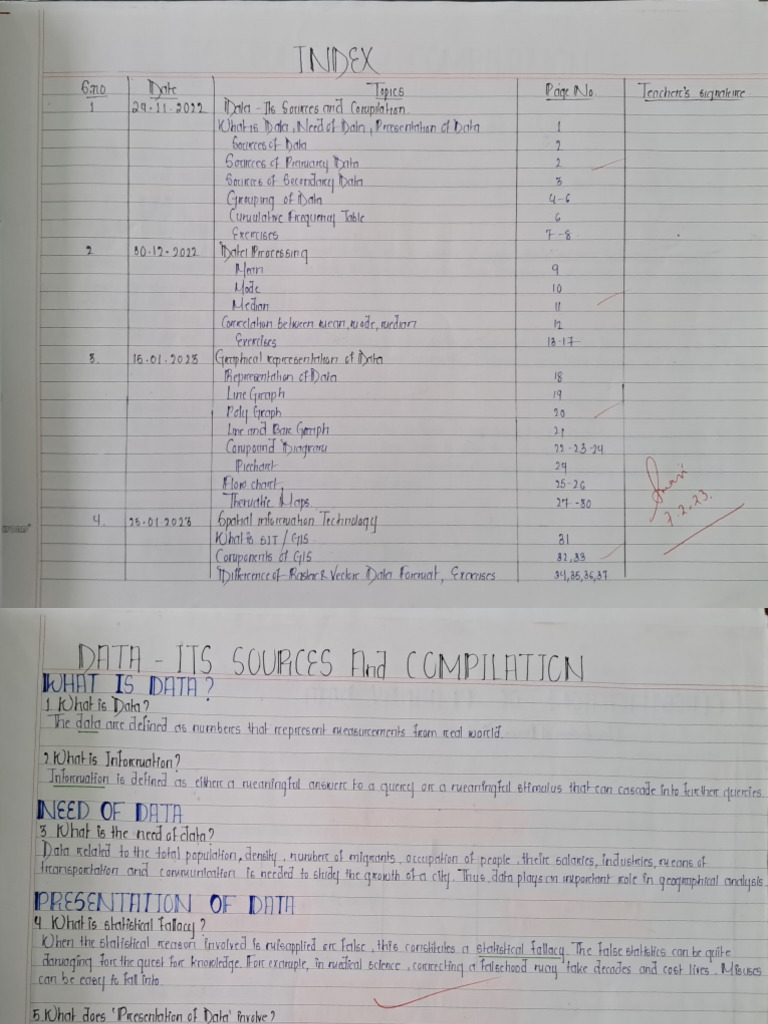 INDEX
S.no Date Topics Page No. Teacher's signature
1 29.11.2022 Data - Its Sources and Compilation
What is Data, Need of Data, Presentation of Data 1
Sources of Data 2
Sources of Primary Data 2
Sources of Secondary Data 3
Grouping of Data 4-6
Cumulative Frequency Table 6
Exercises 7-8
2 30.12.2022 Data Processing
Mean 9
Mode 10
Median 11
Correlation between mean, mode, median 12
Exercises 13-17
3. 15.01.2023 Graphical representation of Data
Representation of Data 18
Line Graph 19
Poly Graph 20
Line and Bar Graph 21
Compound Diagram 22-23-24
Piechart 24
Flow chart 25-26
Thematic Maps 27-30
4. 25.01.2023 Spatial Information Technology
What is SIT / GIS 31
Components of GIS 32,33
Difference of Raster & Vector Data Format, Exercises 34,35,36,37
7.2.23.
DATA - ITS SOURCES And COMPILATION
WHAT IS DATA?
1. What is Data?
The data are defined as numbers that represent measurements from real world.
2. What is Information?
Information is defined as either a meaningful answer to a query or a meaningful stimulus that can cascade into further queries.
NEED OF DATA
3. What is the need of data?
Data related to the total population, density, number of migrants, occupation of people, their salaries, industries, means of
transportation and communication is needed to study the growth of a city. Thus, data plays an important role in geographical analysis.
PRESENTATION OF DATA
4. What is statistical fallacy?
When the statistical reason involved is misapplied or false, this constitutes a statistical fallacy. The false statistics can be quite
damaging for the quest for knowledge. For example, in medical science, correcting a falsehood may take decades and cost lives. Misuses
can be easy to fall into.
5. What does 'Presentation of Data' involve?